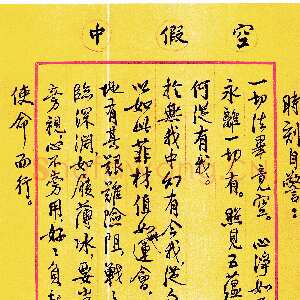 空假中
時刻自警：
一切法畢竟空。心淨如
永離一切有。照見五蘊
何從有我。
於無我中幻有今我從
以如此菲材值如運會
地有甚艱難險阻戰
臨深淵如履薄冰要當
旁視心不旁用好好負起
使命而行。